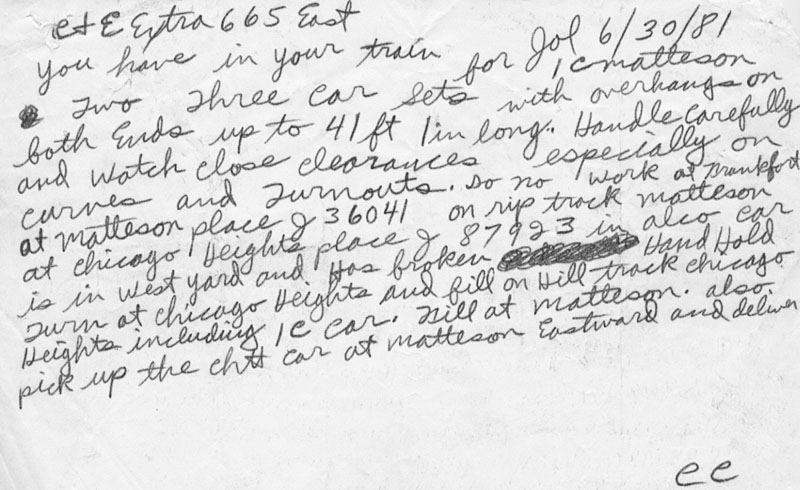 C & E Extra 665 East Jol 6/30/81
You have in your train for 1c matteson
Two Three Car Sets with overhangs on
both Ends up to 41 ft 1 in long. Handle carefully
and watch close clearances especially on
curves and Turnouts. Do no work at Frankfort
at matteson place J 36041 on rip track matteson
at chicago Heights place J 87923 in alco car
is in west yard and Has broken Hand Hold
Turn at chicago Heights and fill on Hill track chicago
Heights including 1c car. Fill at matteson. also
pick up the chtt car at matteson Eastward and deliver
ee